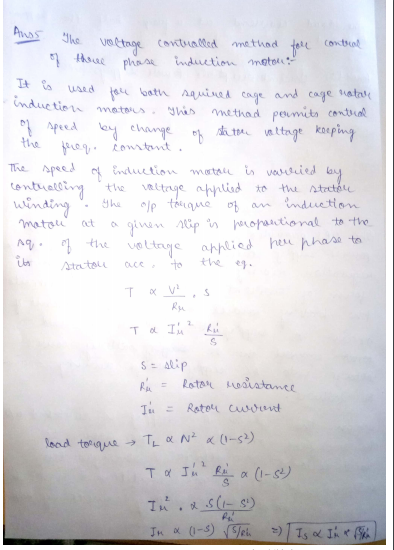 Ans5 The voltage controlled method for control
of three phase induction motor:-
It is used for both squired cage and cage rotor
induction motors. This method permits control
of speed by change of stator voltage keeping
the freq. constant.
The speed of induction motor is varried by
controlling the voltage applied to the stator
winding. The o/p torque of an induction
motor at a given slip is peroportional to the
sq. of the voltage applied per phase to
its stator acc. to the eq.
T ∝ V²/Rr . s
T ∝ Ir'² Rr'/s
S = slip
Rr' = Rotor resistance
Ir' = Rotor current
load torque → TL ∝ N² ∝ (1-S²)
T ∝ Ir'² Rr'/s ∝ (1-S²)
Ir² . ∝ S(1-S²)/Rr'
Ir ∝ (1-S) √S/Rr' => Is ∝ Ir' ∝ √S/Rr'